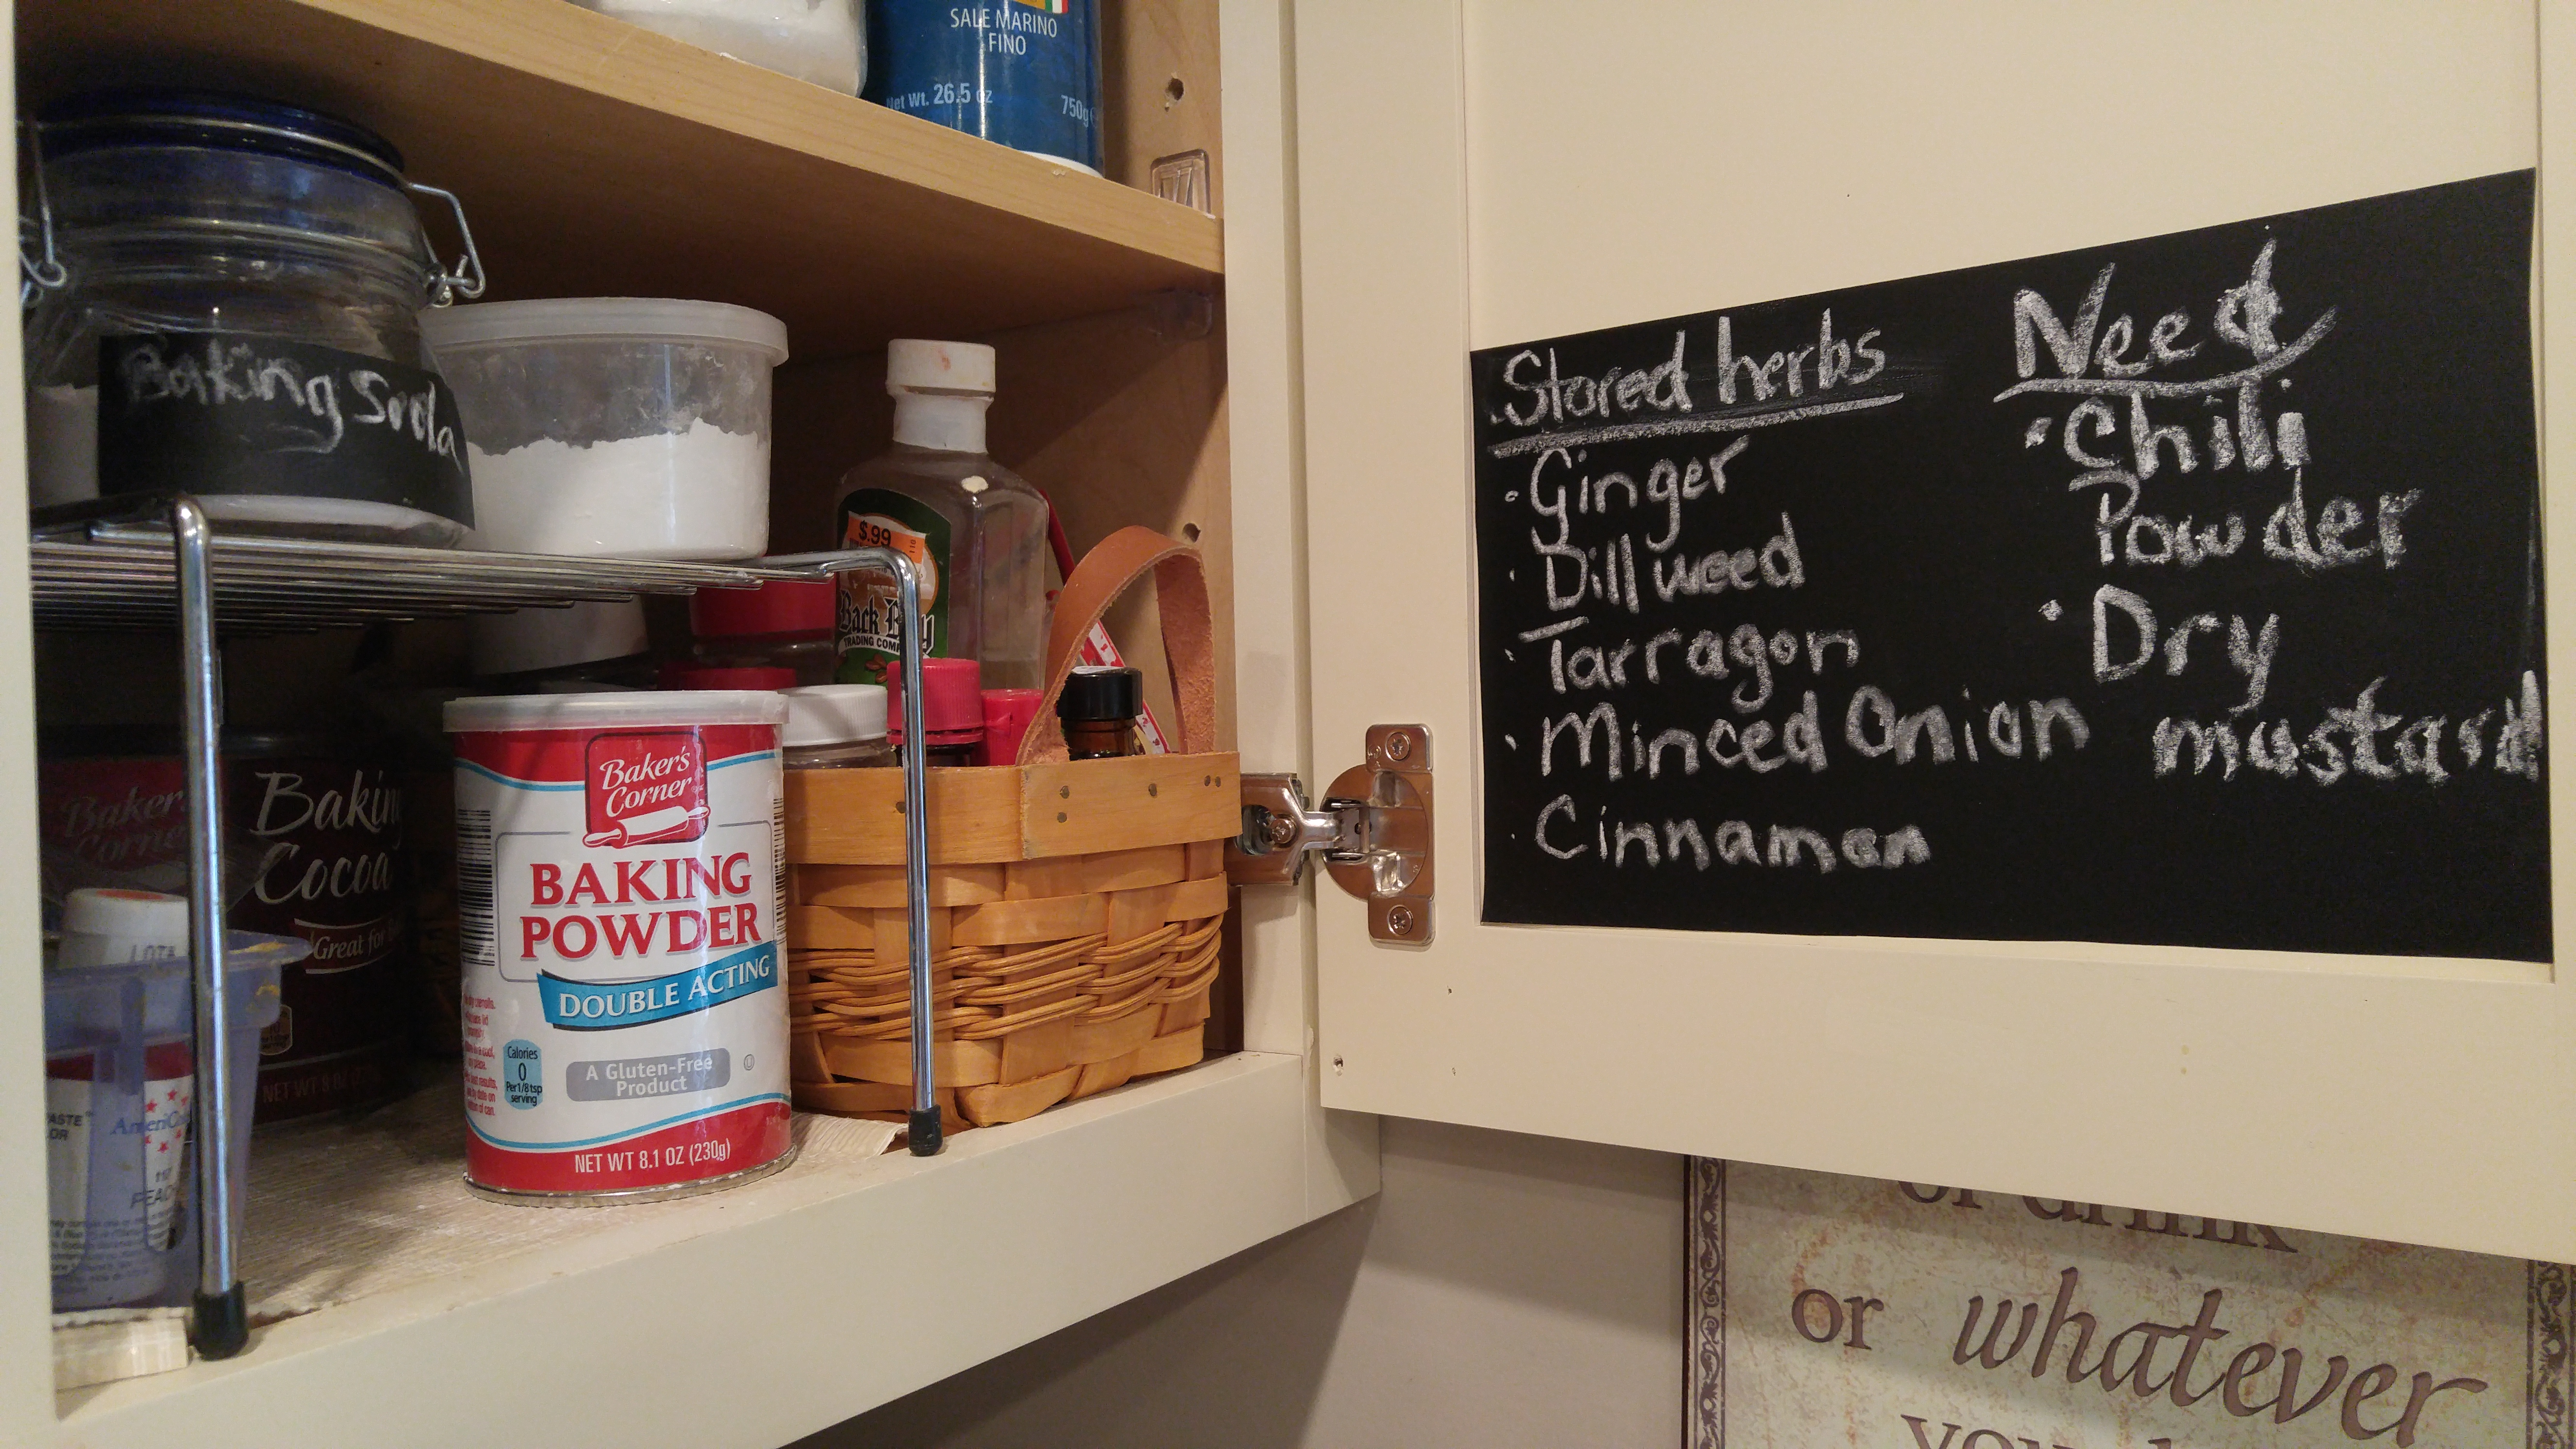 SALE MARINO
FINO
Net Wt. 26.5 oz
750g
Baking Soda
$.99
Back Bay
TRADING COMP
Baker's
Corner
Baking
Cocoa
Great for
NET WT 8 OZ
Baker's
Corner
BAKING
POWDER
DOUBLE ACTING
Calories
0
Per 1/8 tsp
serving
A Gluten-Free
Product
NET WT 8.1 OZ (230g)
Stored herbs
· Ginger
· Dill weed
· Tarragon
· Minced Onion
· Cinnamon
Need
· Chili
Powder
· Dry
mustard
or drink
or whatever